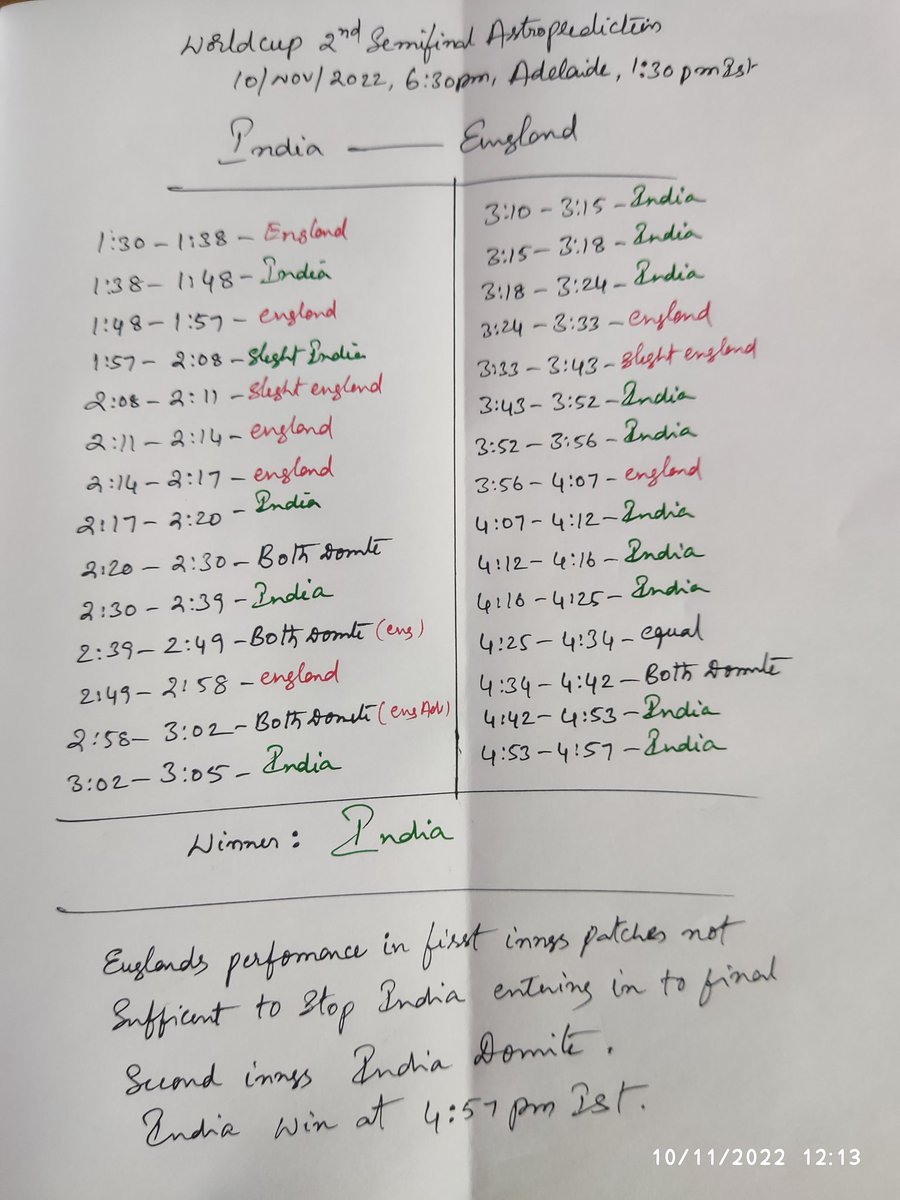 Worldcup 2nd Semifinal Astroprediction
10/Nov/2022, 6:30pm, Adelaide, 1:30pm Ist
India — England
1:30 – 1:38 – England
1:38 – 1:48 – India
1:48 – 1:57 – england
1:57 – 2:08 – Slight India
2:08 – 2:11 – Slight england
2:11 – 2:14 – england
2:14 – 2:17 – england
2:17 – 2:20 – India
2:20 – 2:30 – Both Domte
2:30 – 2:39 – India
2:39 – 2:49 – Both Domte (eng)
2:49 – 2:58 – england
2:58 – 3:02 – Both Domte (eng Adv)
3:02 – 3:05 – India
3:10 – 3:15 – India
3:15 – 3:18 – India
3:18 – 3:24 – India
3:24 – 3:33 – england
3:33 – 3:43 – slight england
3:43 – 3:52 – India
3:52 – 3:56 – India
3:56 – 4:07 – england
4:07 – 4:12 – India
4:12 – 4:16 – India
4:16 – 4:25 – India
4:25 – 4:34 – equal
4:34 – 4:42 – Both Domte
4:42 – 4:53 – India
4:53 – 4:57 – India
Winner: India
Englands perfomance in first inngs patches not
Sufficent to Stop India entering in to final
Second inngs India Domite.
India win at 4:57 pm Ist.
10/11/2022 12:13